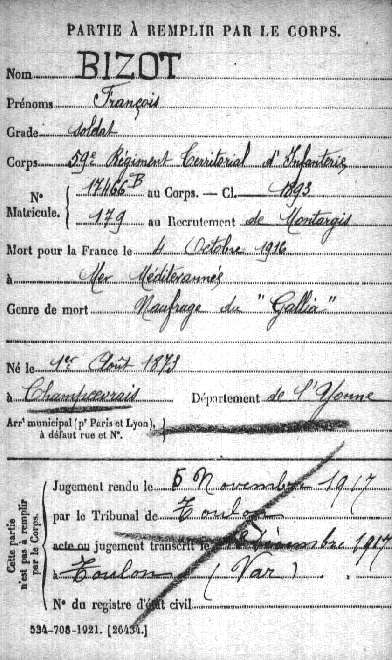 PARTIE À REMPLIR PAR LE CORPS.
Nom BIZOT
Prénoms François
Grade soldat
Corps 59e Régiment Territorial d'Infanterie
N° Matricule. { 17466 B au Corps. — Cl. 1893
179 au Recrutement de Montargis
Mort pour la France le 4 Octobre 1916
à Mer Méditéranné
Genre de mort Naufrage du "Gallia"
Né le 1er Août 1873
à Champcevrais Département de l'Yonne
Arrt municipal (pr Paris et Lyon),
à défaut rue et N°.
Cette partie n'est pas à remplir par le Corps.
Jugement rendu le 5 Novembre 1917
par le Tribunal de Toulon
acte ou jugement transcrit le Décembre 1917
à Toulon (Var)
N° du registre d'état civil
534-708-1921. [26434.]